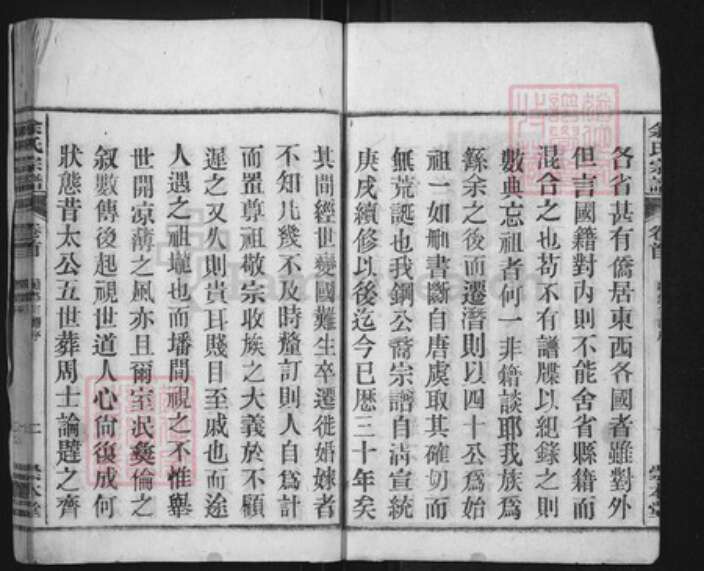 余氏宗譜
卷首
各省甚有僑居東西各國者雖對外
但言國籍對內則不能舍省縣籍而
混合之也苟不有譜牒以紀錄之則
數典忘祖者何一非籍談耶我族為
繇余之後而遷潛則以四十公為始
祖一如刪書斷自唐虞取其確切而
無荒誕也我鋼公裔宗譜自清宣統
庚戌續修以後迄今已歷三十年矣
其間經世變國難生卒遷徙婚嫁者
不知凡幾不及時釐訂則人自為計
而置尊祖敬宗收族之大義於不顧
遲之又久則貴耳賤目至戚也而途
人遇之祖壠也而墦間視之不惟舉
世開涼薄之風亦且爾室泯彝倫之
敘數傳後起視世道人心尙復成何
狀態昔太公五世葬周士論韙之齊
余氏宗譜
卷首